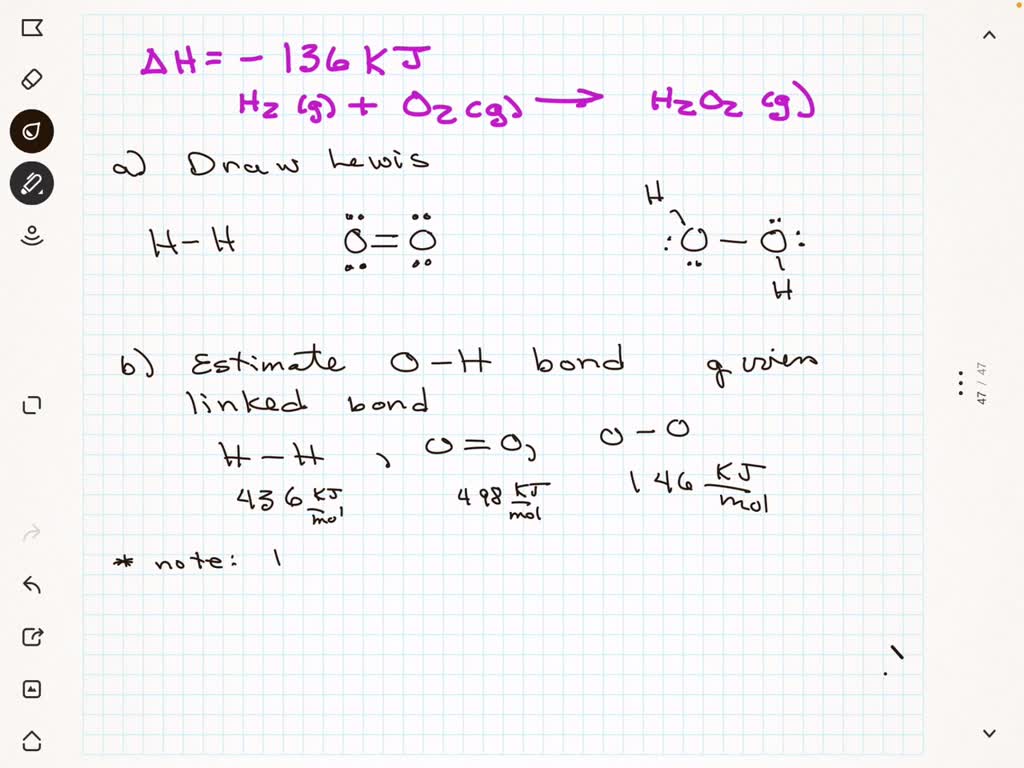 ΔH = - 136 KJ
H2 (g) + O2 (g) → H2O2 (g)
a) Draw Lewis
H-H O=O H O-O H
b) Estimate O-H bond given
linked bond
H-H, O=O, O-O
436 KJ/mol 498 KJ/mol 146 KJ/mol
* note: I
47 / 47